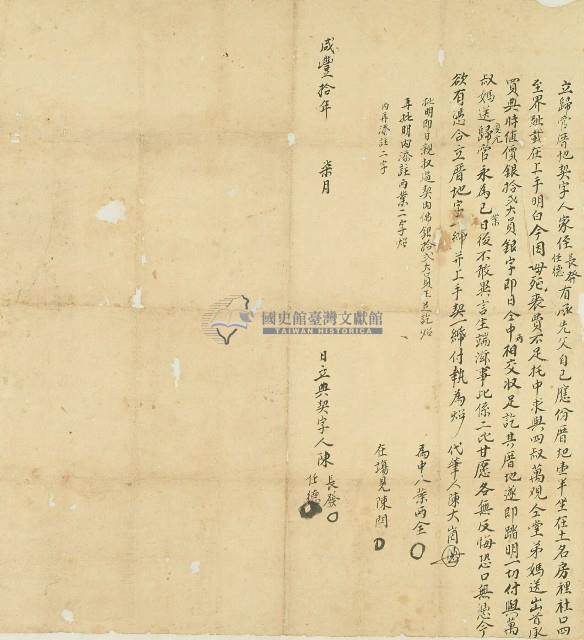 立歸管厝地契字人家侄長發任德有承先父自己應份厝地壹半坐在土名房裡社口四
至界趾載在上手明白今因毋死喪費不足托中求與四叔萬观仝堂弟媽送出首承
買典時值價銀拾弍大員銀字即日仝中兩相交收足訖其厝地遂即踏明一切付與萬
叔媽送歸管永為己業日後不敢異言生端滋事此係二比甘愿各無反悔恐口無憑今
欲有憑合立厝地字一紙并上手契一紙付執為炤
代筆人陳大崗
批明即日親收過契内佛銀拾弍大員正足訖炤
再批明内添註兩業二字炤
内再添註二字
為中人葉丙全
在塲見陳問
咸豐拾年 柒月 日立典契字人陳長發任德
國史館臺灣文獻館
TAIWAN HISTORICA